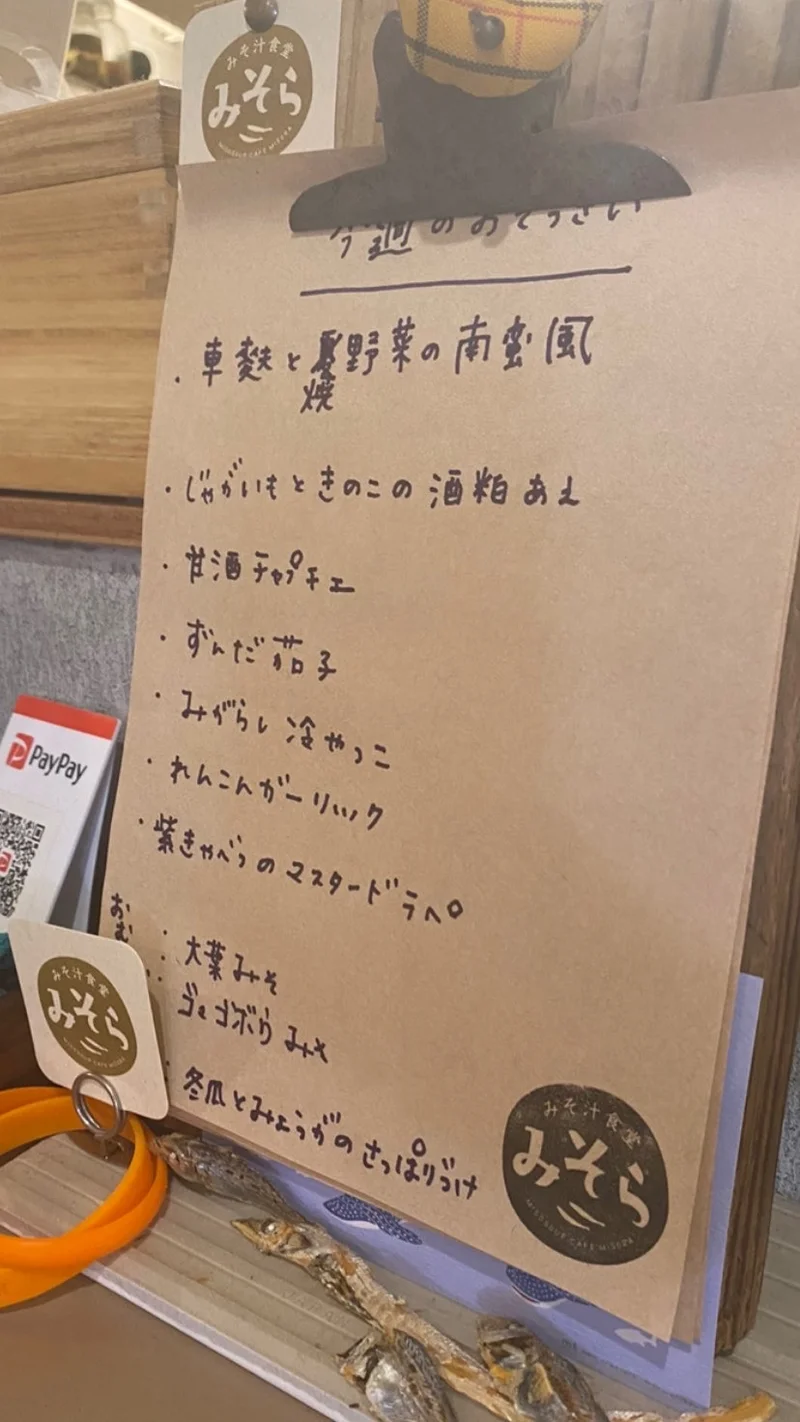 みそ汁食堂
みそら
MISOSOUP CAFE MISORA
今週のおそうざい
・車麩と夏野菜の南蛮風
焼
・じゃがいもときのこの酒粕あえ
・甘酒チャプチェ
・ずんだ茄子
・みがらし冷やっこ
・れんこんガーリック
・紫きゃべつのマスタードラペ
おむ
・大葉みそ
・ゴマゴボウみそ
・冬瓜とみょうがのさっぱりづけ
PayPay
みそ汁食堂
みそら
MISOSOUP CAFE MISORA
みそ汁食堂
みそら
MISOSOUP CAFE MISORA